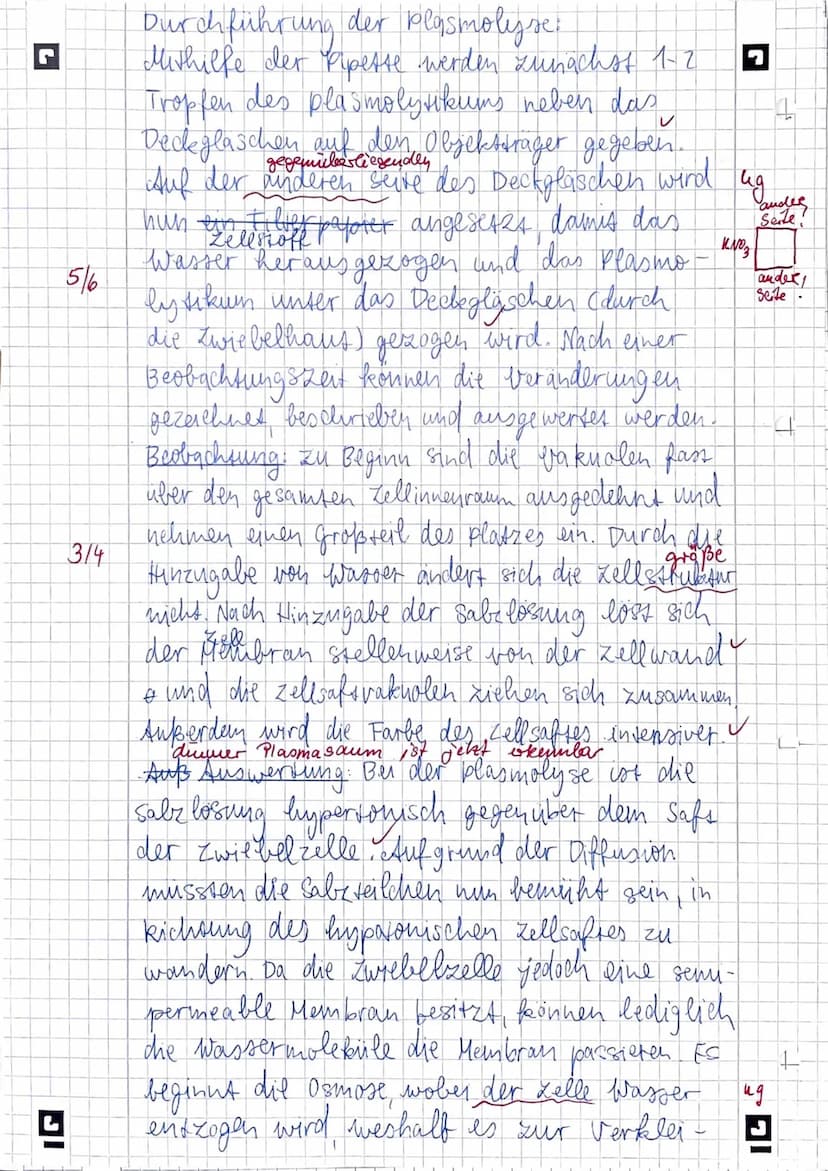 Durchführung der Plasmolyse:
Mithilfe der Pipette werden zunächst 1-2
Tropfen des Plasmolytikums neben das
Deckgläschen auf den Objektträger gegeben.
gegenüberliegenden
Auf der anderen Seite des Deckgläschen wird ug
andere Seite!
nun ein Filterpapier angesetzt, damit das
Zellstoff
KNO3
Wasser herausgezogen und das Plasmo-
5/6
andere Seite!
lytikum unter das Deckegläschen (durch
die Zwiebelhaut) gezogen wird. Nach einer
Beobachtungszeit können die Veränderungen
gezeichnet, beschrieben und ausgewertet werden.
Beobachtung: Zu Beginn sind die Vakuolen fast
über den gesamten Zellinnenraum ausgedehnt und
nehmen einen Großteil des Platzes ein. Durch die
3/4
größe
Hinzugabe von Wasser ändert sich die Zellstruktur
nicht. Nach Hinzugabe der Salzlösung löst sich
Zell
der Membran stellenweise von der Zellwand
und die Zellsaftvakuolen ziehen sich zusammen.
Außerdem wird die Farbe des Zellsaftes intensiver.
dünner Plasmasaum ist jetzt erkennbar
Auß Auswertung: Bei der Plasmolyse ist die
Salzlösung hypertonisch gegenüber dem Saft
der Zwiebelzelle. Aufgrund der Diffusion
müssten die Salzteilchen nun bemüht sein, in
Richtung des hypotonischen Zellsaftes zu
wandern. Da die Zwiebelzelle jedoch eine semi-
permeable Membran besitzt, können lediglich
die Wassermoleküle die Membran passieren. Es
beginnt die Osmose, wobei der Zelle Wasser ug
entzogen wird, weshalb es zur Verklei-